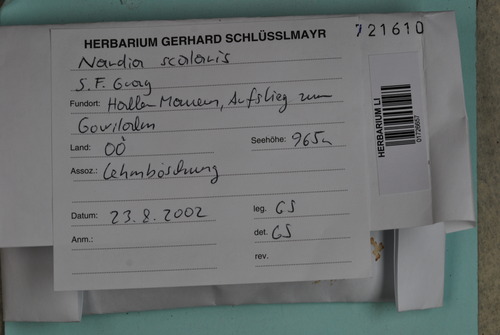 HERBARIUM GERHARD SCHLÜSSLMAYR
721610
Nardia scalaris
S. F. Gray
Fundort: Haller Mauern, Aufstieg zur
Gowilalm
Land: OÖ
Seehöhe: 965m
Assoz.: Lehmböschung
Datum: 23.8.2002
leg. GS
Anm.:
det. GS
rev.
HERBARIUM LI